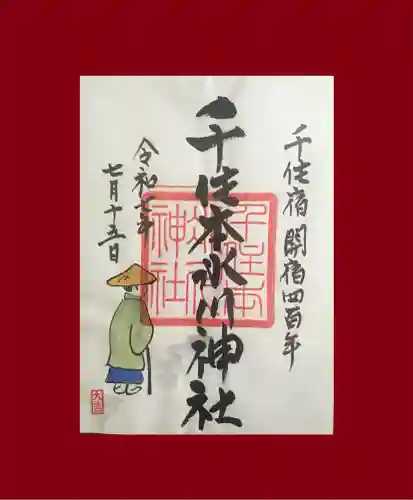 千住宿 開宿四百年
千住本氷川神社
令和七年
七月十五日
千住本
氷川
神社